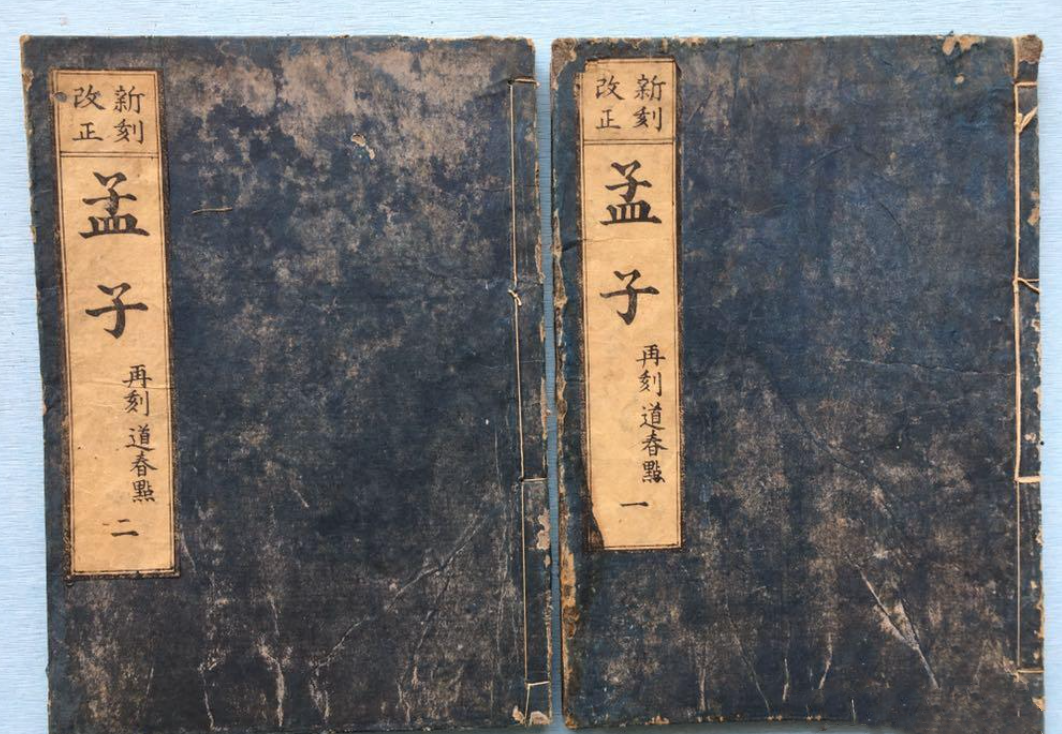 新刻
改正
孟子
再刻 道春點
一
新刻
改正
孟子
再刻 道春點
二